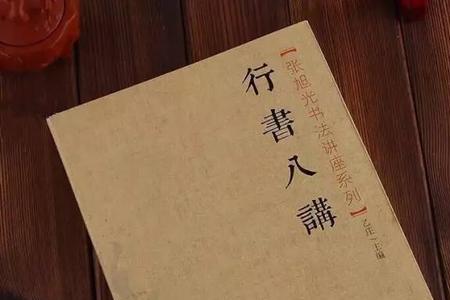 【张旭光书法讲座系列】
行書八講
乙庄/主编